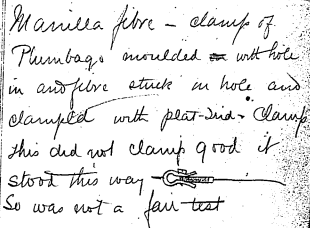 Manilla fibre – clamp of
Plumbago moulded with hole
in and fibre stuck in hole and
clamped with plat-Irid – Clamp
this did not clamp good it
stood this way
So was not a fair test